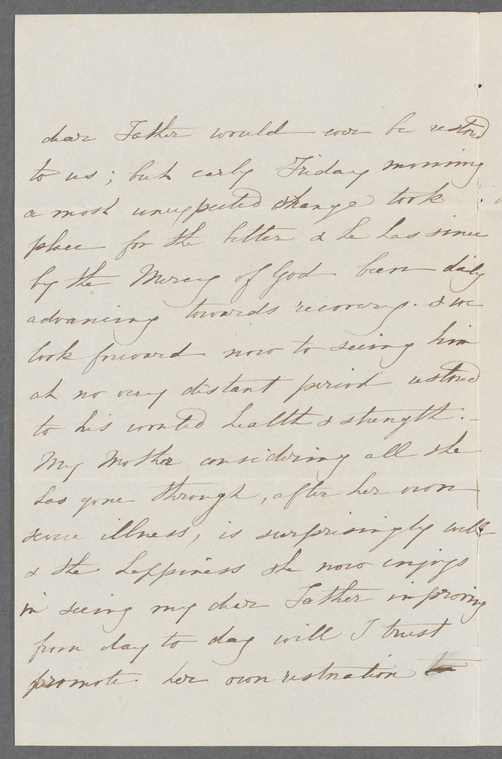 dear Father would ever be restored
to us; but early Friday morning
a most unexpected change took
place for the better & he has since
by the Mercy of God been daily
advancing towards recovery. & we
look forward now to seeing him
at no very distant period restored
to his wonted health & strength. -
My Mother considering all she
has gone through, after her own
severe illness, is surprisingly well
& the happiness she now enjoys
in seeing my dear Father improving
from day to day will I trust
promote her own restoration